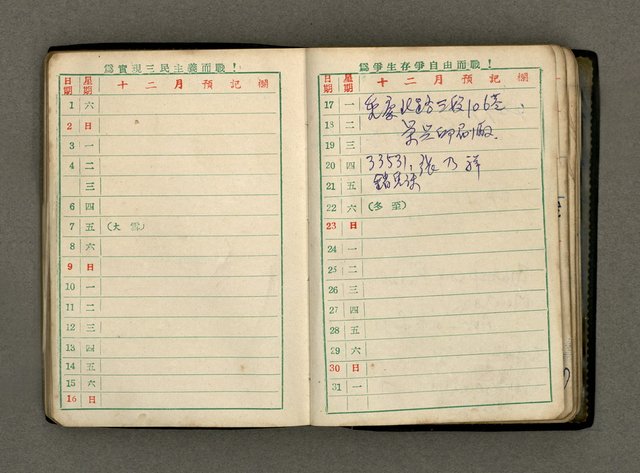 為實現三民主義而戰！
日期 星期 十二月預記欄
1 六
2 日
3 一
4 二
三
6 四
7 五 （大雪）
8 六
9 日
10 一
11 二
12 三
13 四
14 五
15 六
16 日
為爭生存爭自由而戰！
日期 星期 十二月預記欄
17 一 重慶北路三段106巷
18 二 印刷廠
19 三
20 四 33531，張乃祥
21 五
22 六 （冬至）
23 日
24 一
25 二
26 三
27 四
28 五
29 六
30 日
31 一